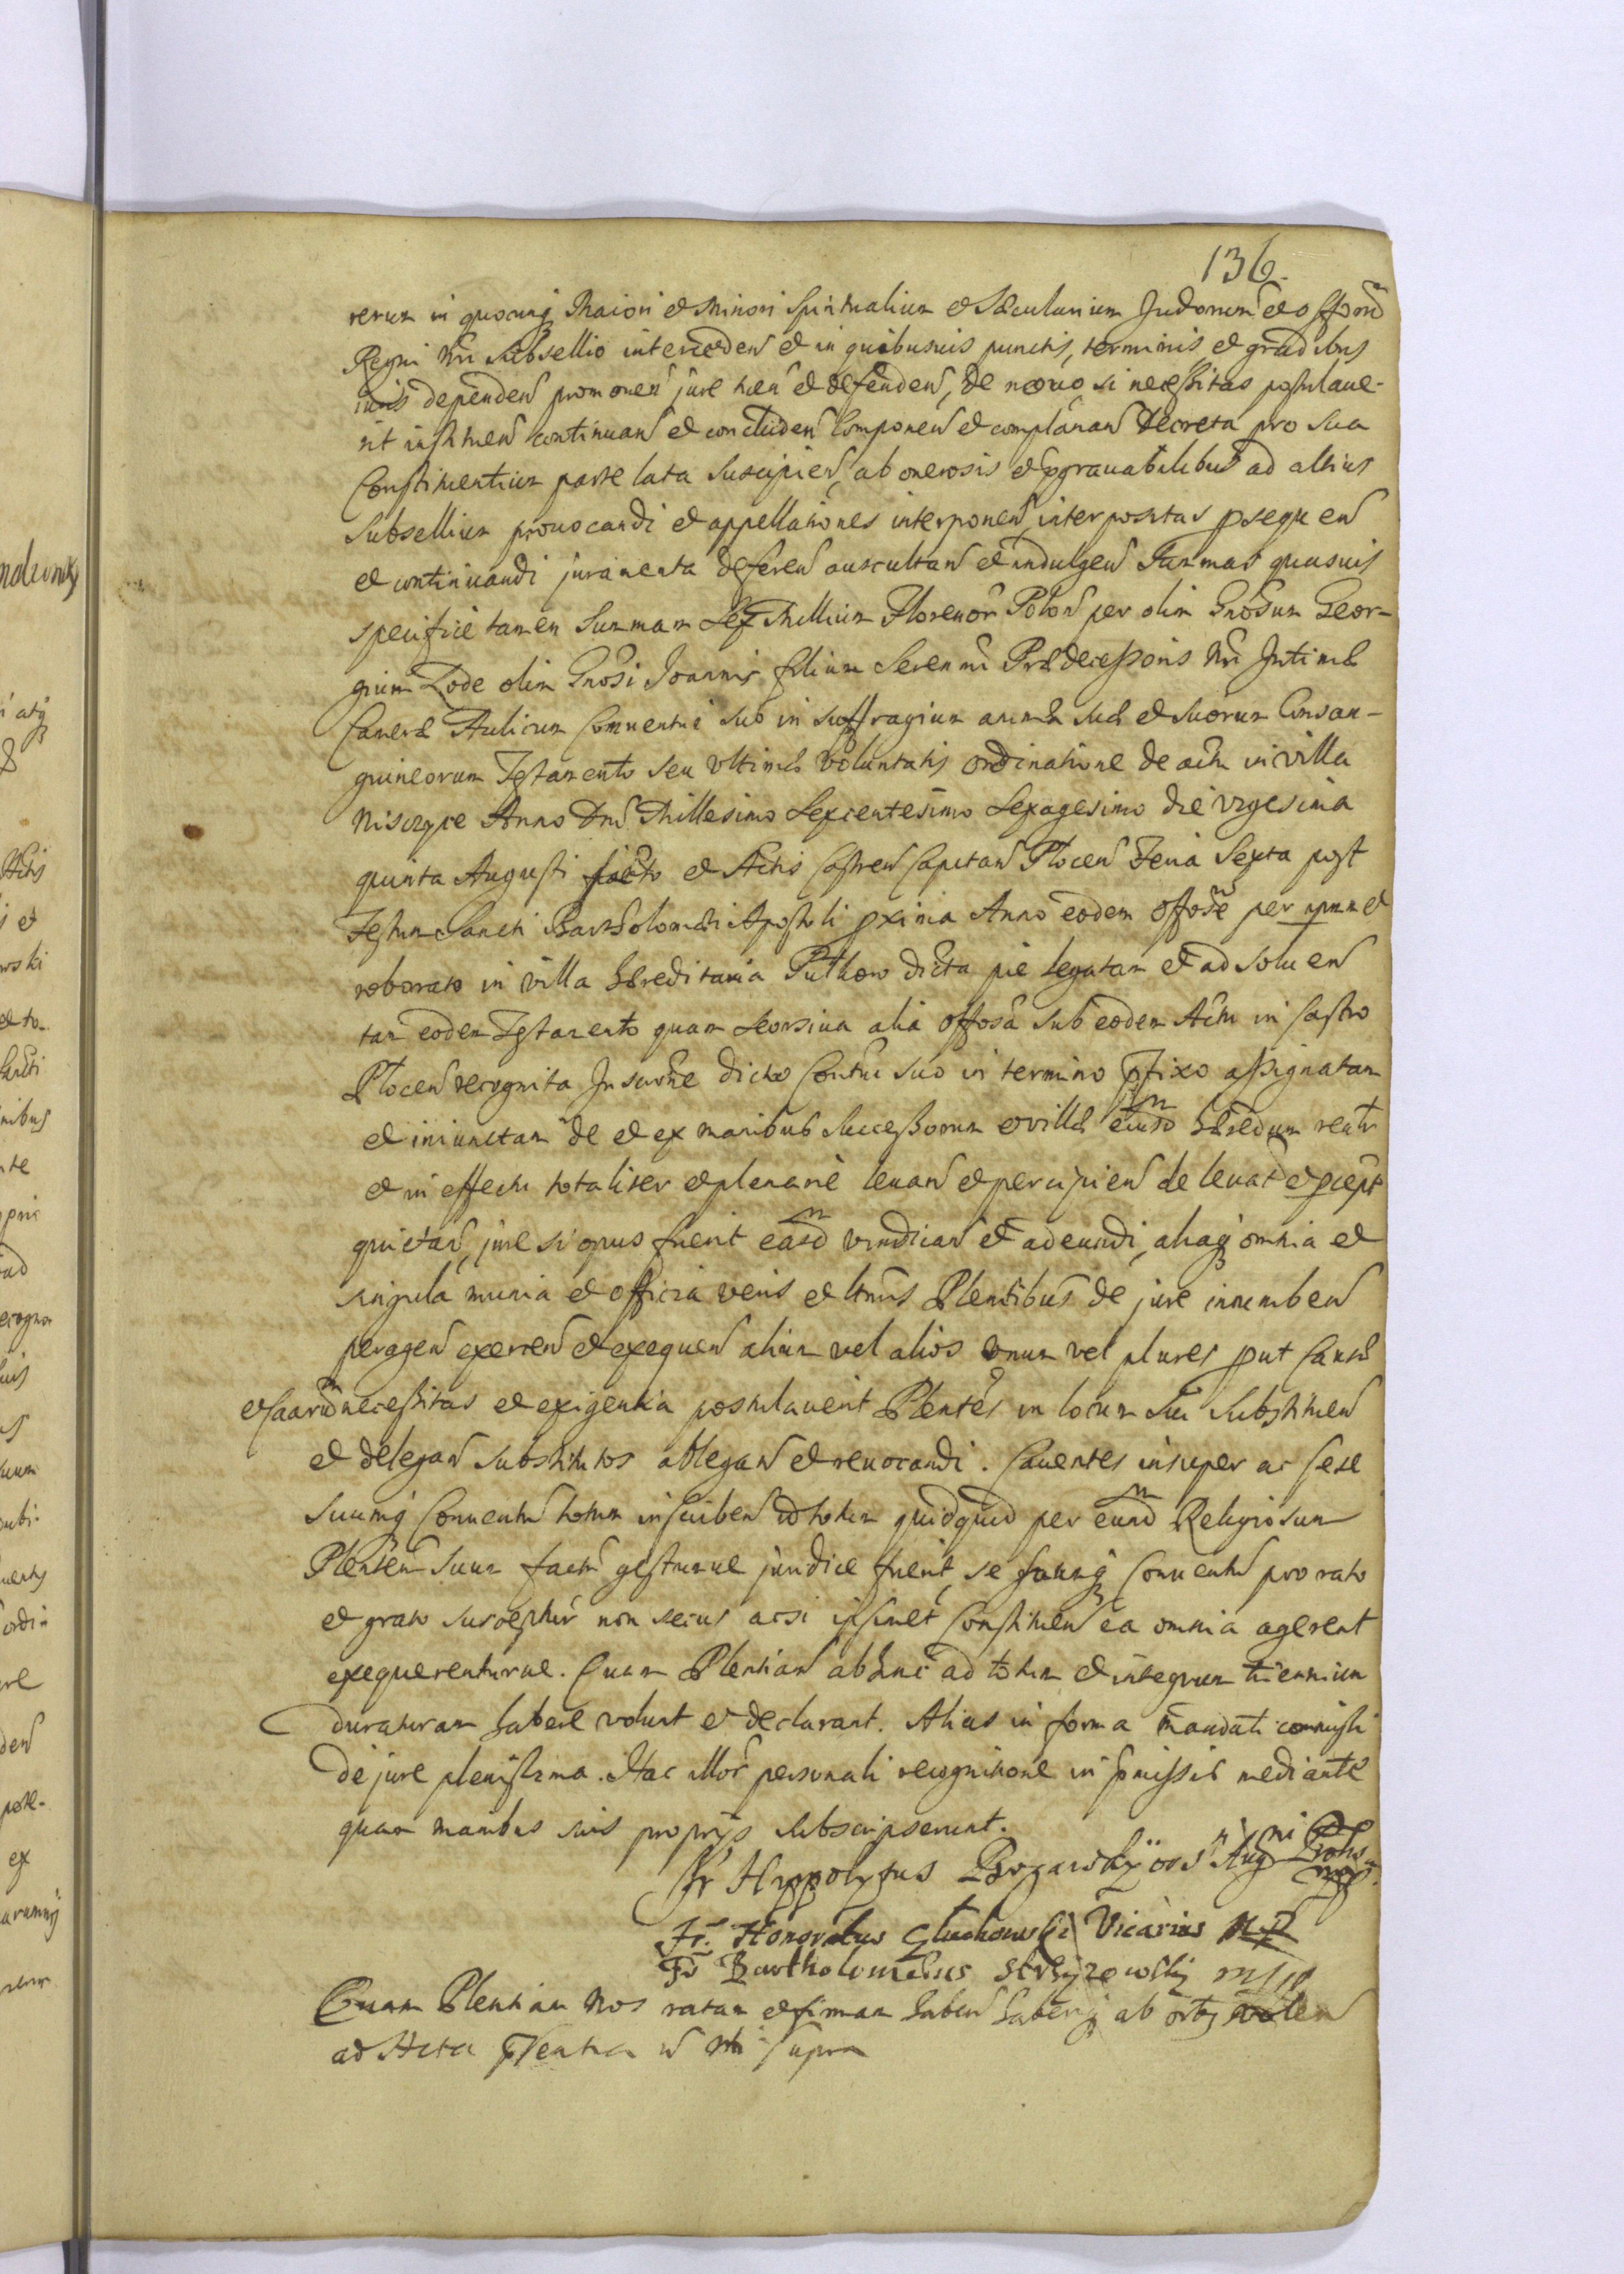 136.
rerum in quocunq Maiori et Minori Spiritualium et Sæcularium Judiorum et offiorũ
Regni Nri Subsellio interceden et in quibusuis punctis, terminis et gradibus
iuris dependen promouen jure tuen et defenden, de nouo si necessitas postulaue-
rit instituen continuan et concluden componen et complanan Decreta pro sua
Constituentium parte lata suscipien, ab onerosis et pgrauabilibus ad altius
subsellium prouocandi et appellationes interponen, interpositas psequen
et continuandi juramenta deferen auscultan et indulgen Summas quasuis
specifice tamen Summam Sex Millium Florenor Polon per olim Gnosum Geor-
gium Zode olim Gnosi Joannis filium Serenmi Prædecessoris Nri Intimæ
Cameræ Aulicum Conuentui suo in suffragium animæ suæ et suorum Consan-
guineorum Testamento seu Vltimæ Voluntatis ordinatione de actu in villa
Niszczyce Anno Dni Millesimo Sexcentesimo Sexagesimo die vigesima
quinta Augusti facto et Actis Castren Capitan Plocen Feria Sexta post
Festum Sancti Bartholomæi Apostoli pxima Anno eodem per ipsum et
roborato in villa hæreditaria dicta pie legatam et ad soluen
tam eodem Testamento quam seorsiua alia sub eodem Actu in Castro
Plocen recognita Inscripne dicto Contui suo in termino pfixo assignatam
et iniunctam de et ex manibus Successorum et villæ eiusd hæredum realr
et in effectu totaliter et plenarie leuan et percipien de leuat et pcept
quietan, jure si opus fuerit easd vindican et adeundi, aliaq omnia et
singula munia et officia veris et ltmis Plentibus de jure incumben
peragen exercen et exequen alium vel alios vnum vel plures put causæ
et earũd necessitas et exigentia postulauerit Plentes in locum sui substituen
et delegan substitutos ablegan et reuocandi. Cauentes insuper ac sese
suumq Conuentu totum inscriben id totum quidquid per eund Religiosum
Plentem suum factu gestumue juridice fuerit, se suumq Conuentu pro rato
et grato suscepturu non secus acsi ipsimet Constituen ea omnia agerent
exequerenturue. Quam Plentiam abhinc ad totum et integrum triennium
duraturam habere volunt et declarant. Alias in forma mandati commissi
de jure plenissima. Hac illor personali recognitione in pmissis mediante
quam manibus suis proprijs subscripserunt.
Fr Hyppolytus
Fr. Honoratus Gluchowski Vicarius M.P
Fr Bartholomæus mp
Quam Plentiam Nos ratam et firmam haben haberiq ab
ad Acta supra